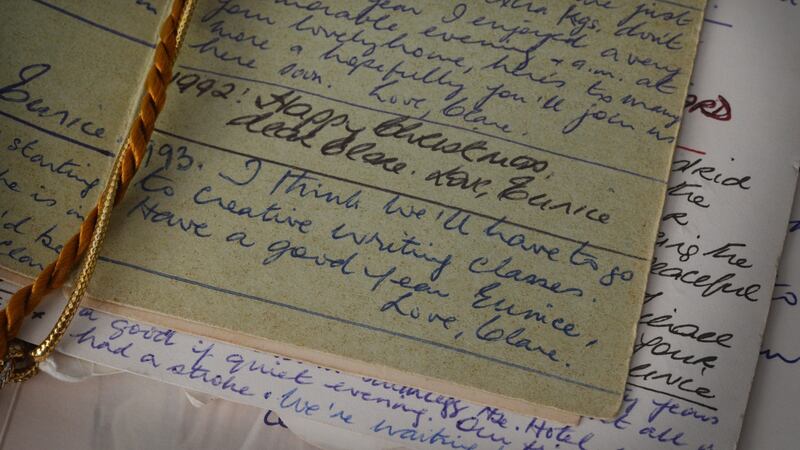 just
year I enjoyed a very
memorable evening + a.m. at
your lovely home, here's to many
more & hopefully you'll join us
here soon. Love, Clare.
1992: Happy Christmas,
dear Clare. Love, Eunice
93. I think we'll have to go
to creative writing classes.
Have a good year Eunice,
Love, Clare.
Eunice
starting
he is
d be
plan
ORD
drid
the
the
eaceful
your
unice
a good if quiet evening. Our
had a stroke. We're waiting
Hotel
years
it all